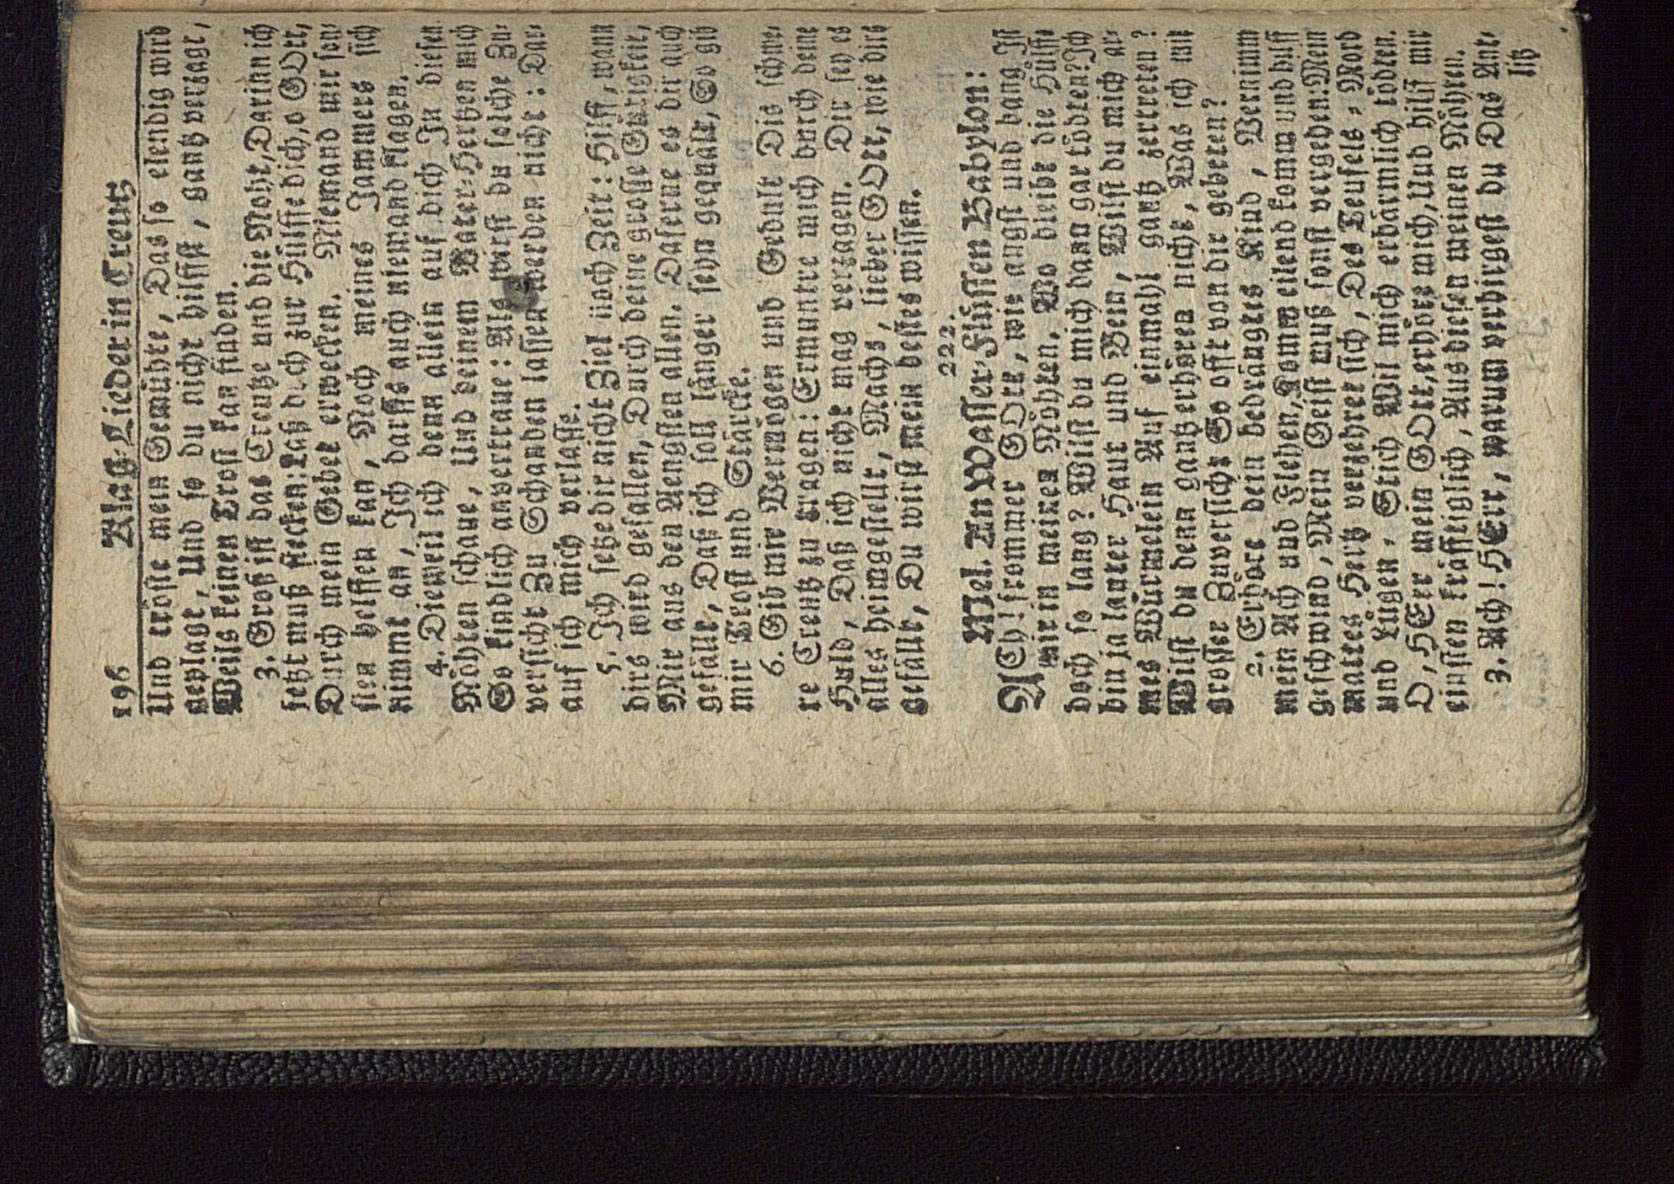 196 Klag-Lieder in Creutz
Und tröste mein Gemühte, Das so elendig wird
geplagt, Und so du nicht hilffst, gantz verzagt,
Weils keinen Trost kan finden.
3. Groß ist das Creutze und die Noht, Darinn ich
jetzt muß stecken: Laß dich zur Hülffe dich, o GOtt,
Durch mein Gebet erwecken. Niemand mir son-
sten helffen kan, Noch meines Jammers sich
nimmt an, Ich darffs auch niemand klagen.
4. Dieweil ich denn allein auf dich In diesen
Nöhten schaue, Und deinem Vater-Hertzen mich
So kindlich anvertraue: Als wirst du solche Zu-
versicht Zu Schanden lassen werden nicht: Dar-
auf ich mich verlasse.
5. Ich setze dir nicht Ziel noch Zeit: Hilff, wann
dirs wird gefallen, Durch deine grosse Gütigkeit,
Mir aus den Aengsten allen. Daferne es dir auch
gefällt, Daß ich soll länger seyn gequält, So gib
mir Trost und Stärcke.
6. Gib mir Vermögen und Gedult Dis schwe-
re Creutz zu tragen: Ermuntre mich durch deine
Huld, Daß ich nicht mag verzagen. Dir sey es
alles heimgestellt, Machs, lieber GOtt, wie dirs
gefällt, Du wirst mein bestes wissen.
222.
Mel. An Wasser-Flüssen Babylon:
ACh! frommer GOtt, wie angst und bang Ist
mir in meinen Nöhten. Wo bleibt die Hülffe
doch so lang? Wilst du mich dann gar tödten? Ich
bin ja lauter Haut und Bein, Wilst du mich ar-
mes Würmelein Auf einmahl gantz zertreten?
Wilst du denn gantz erhören nicht, Was ich mit
grosser Zuversicht So offt von dir gebeten?
2. Erhöre dein bedrängtes Kind, Vernimm
mein Ach und Flehen, Komm eilend komm und hilff
geschwind, Mein Geist muß sonst vergehen: Mein
mattes Hertz verzehret sich, Des Teufels-Mord
und Lügen-Stich Wil mich erbärmlich tödten.
O, HErr mein GOtt, erhöre mich, Und hilff mir
einsten kräfftiglich, Aus diesen meinen Nöhten.
3. Ach! HErr, warum verbirgest du Das Ant-
litz